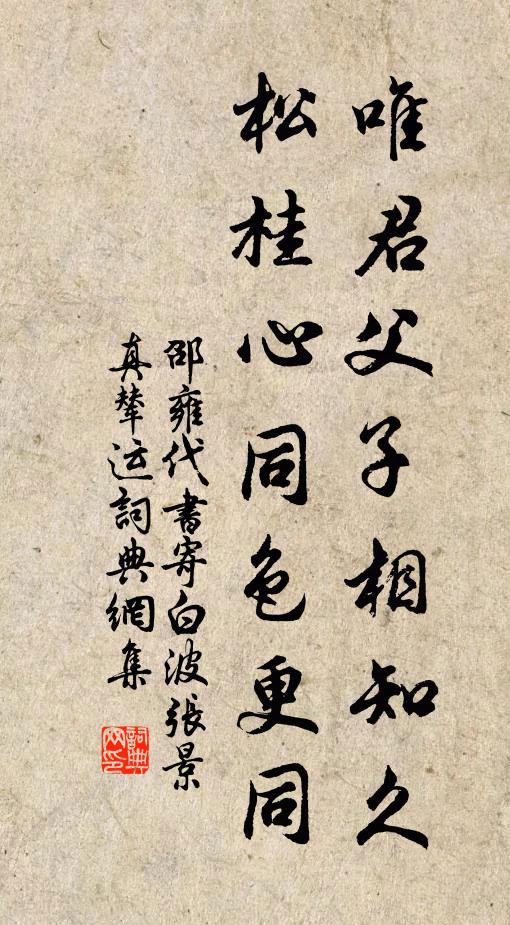 唯君父子相知久
松桂心同色更同
邵雍代書寄白波張景
真輦运詞典網集
詞典
网印